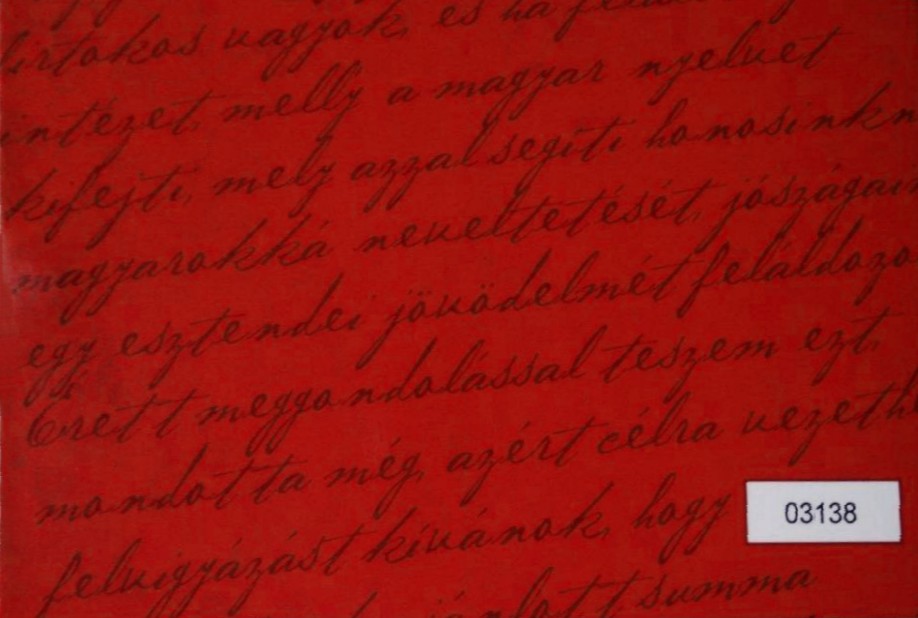 birtokos vagyok, és ha
intézet, melly a magyar nyelvet
kifejti, mely azzal segiti honosinkn
magyarokká neveltetését, jószágai
egy esztendei jövödelmét feláldozo
Érett meggondolással teszem ezt,
mondotta még, azért célra vezeth
felvigyázást kívánok, hogy
03138
summa